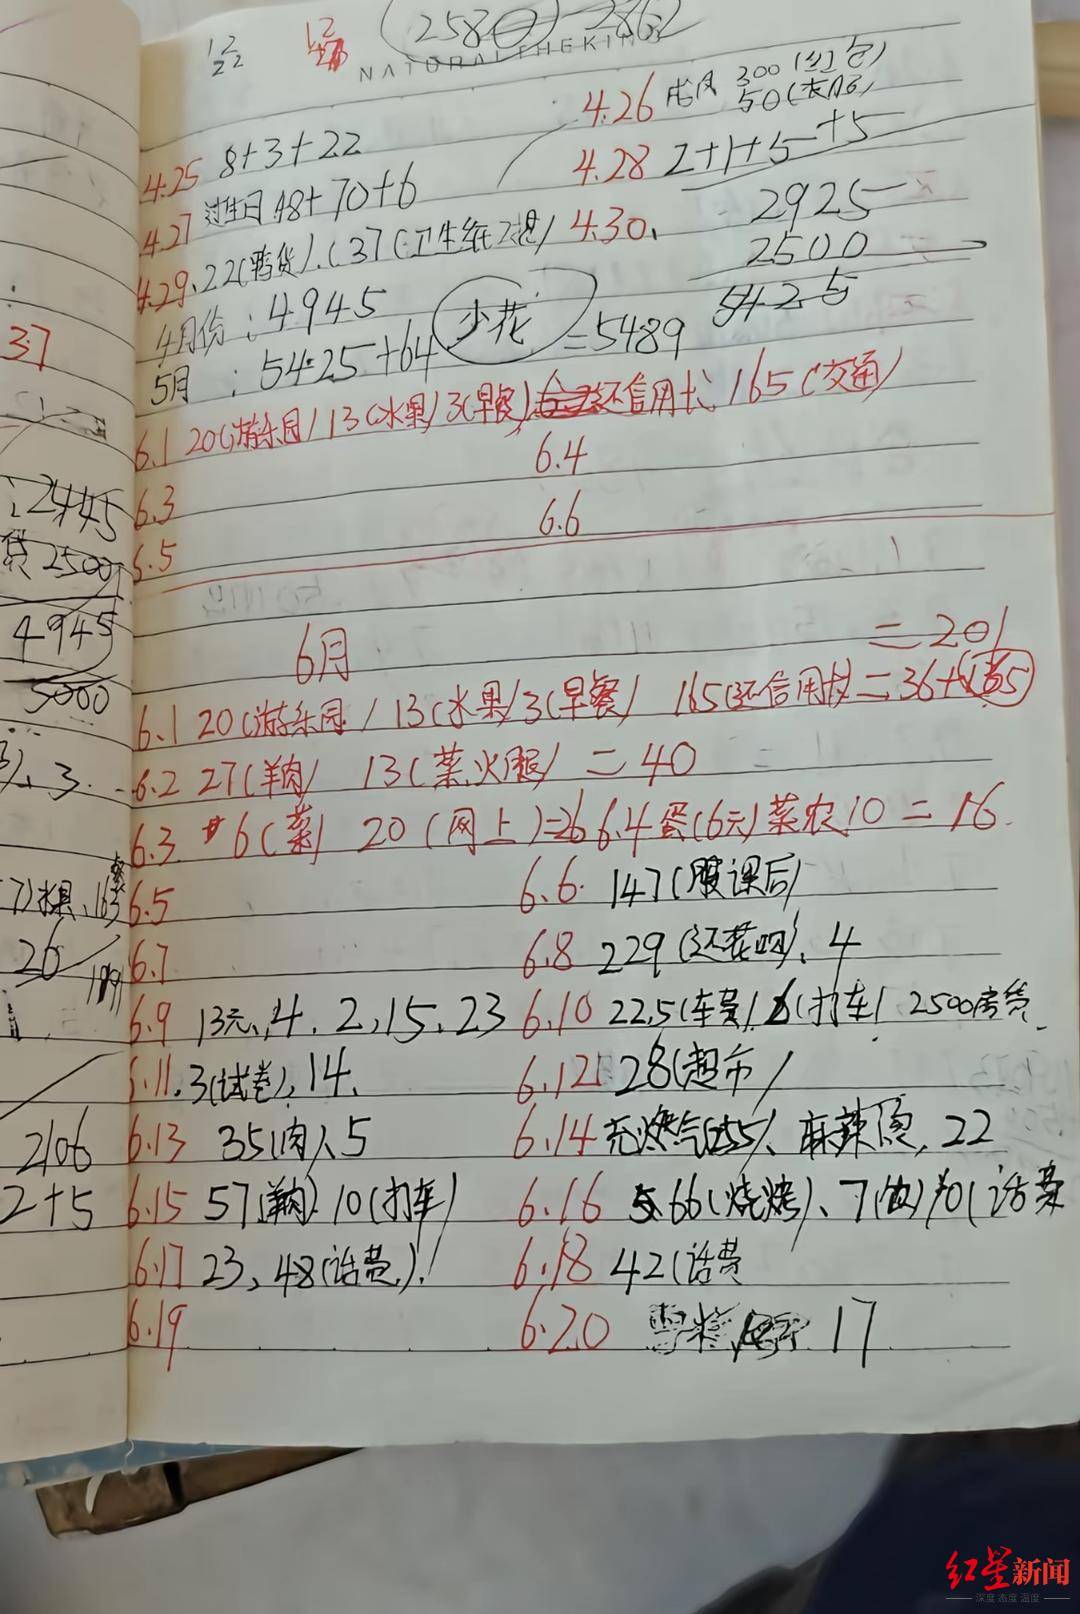 2580 2862
NATURAL THE KING
4.26 300(红包)
50(衣服)
4.25 8+3+22
4.28 2+1+5+5
4.27 过生日 48+70+6
2925
4.29、22(鸭货)、(37(卫生纸2提) 4.30、
2500
5425
4月份:4945
5月:5425+64 少花 =5489
6.1 20(游乐园)13(水果)3(早餐) 还信用卡、165(交通)
6.3 6.4
6.5 6.6
6月 =201
6.1 20(游乐园)13(水果)3(早餐) 165(还信用卡)=36+165
6.2 27(羊肉) 13(菜,火腿)=40
6.3 6(菜) 20(网上)=26 6.4 蛋(6元)菜农10=16
6.5 6.6 147(课后)
6.7 6.8 229(还花呗)、4
6.9 13元、4.2,15.23 6.10 22.5(车费)6(打车)2500房贷
6.11.3(试卷)、14、 6.12 28(超市)
6.13 35(肉)、5 6.14 充燃气(55)、麻辣烫,22
6.15 57(羊肉)10(打车) 6.16 66(烧烤)、7(饮)10(话费
6.17 23、48(话费) 6.18 42(话费
6.19 6.20 17
37
2445
贷2500
4945
5000
3
水果、163
26
2106
2+5
红星新闻
深度 态度 温度